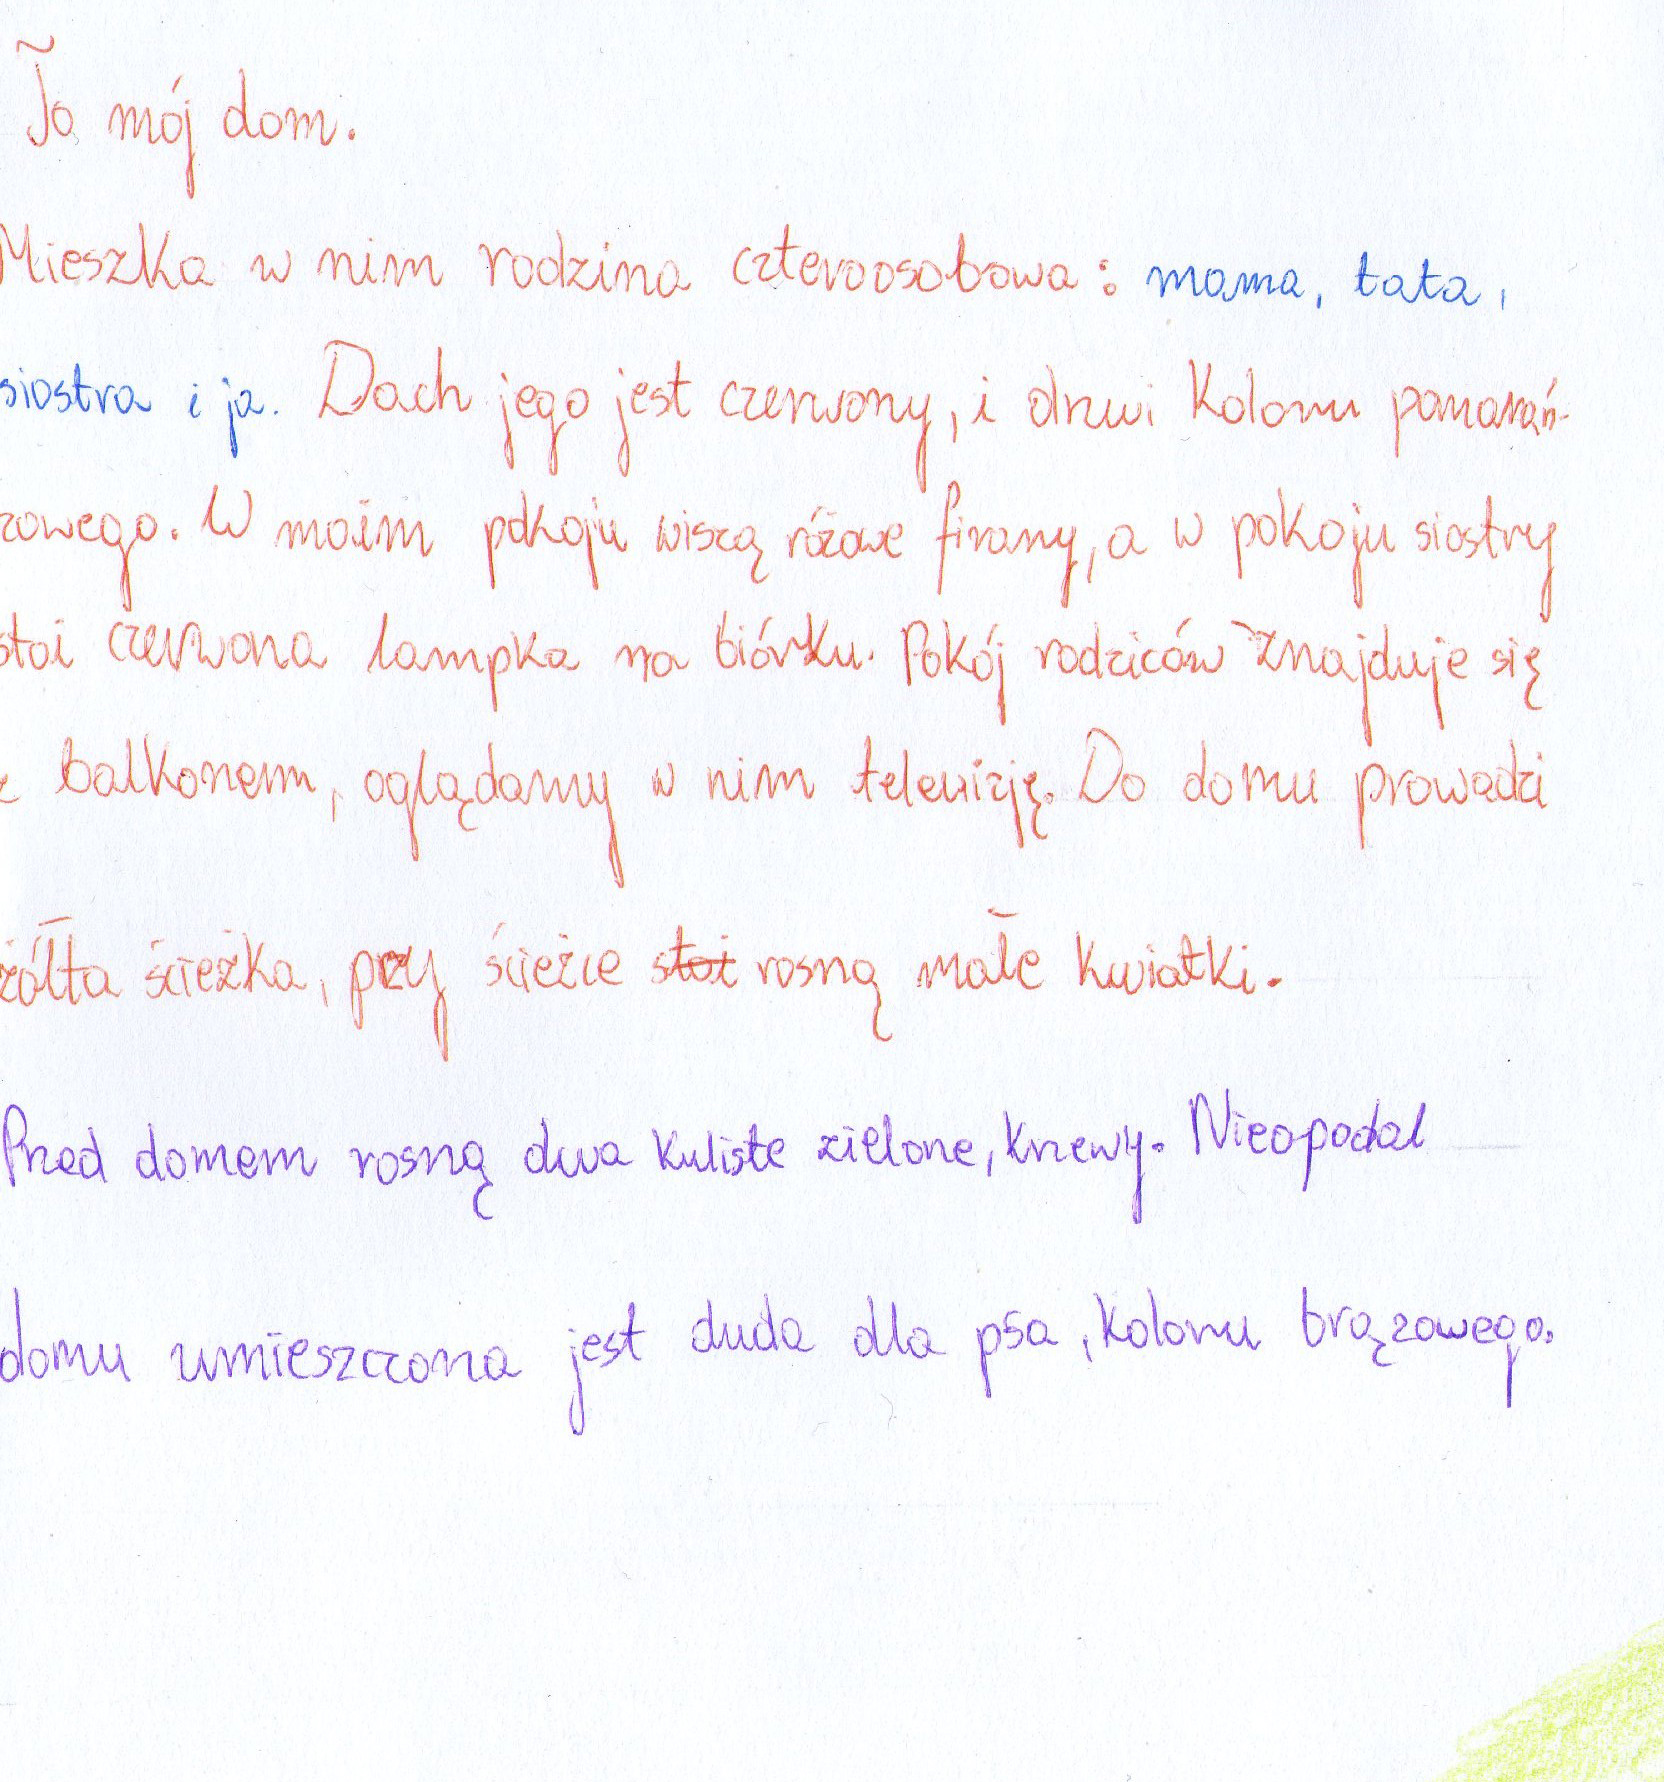 To mój dom.
Mieszka w nim rodzina czteroosobowa: mama, tata,
siostra i ja. Dach jego jest czerwony, i drzwi koloru pomarań-
zowego. W moim pokoju wiszą różowe firany, a w pokoju siostry
stoi czerwona lampka na biórku. Pokój rodziców znajduje się
z balkonem, oglądamy w nim telewizję. Do domu prowadzi
żółta ścieżka, przy ścieżce stoi rosną małe kwiatki.
Przed domem rosną dwa kuliste zielone, krzewy. Nieopodal
domu umieszczona jest duda dla psa, koloru brązowego.